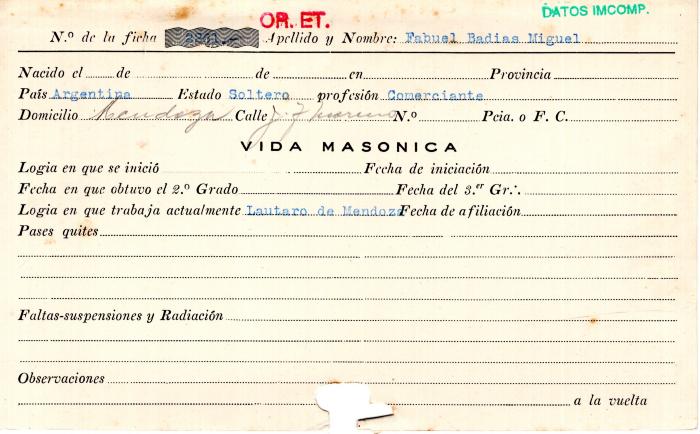 OR. ET.
DATOS IMCOMP.
N.º de la ficha Apellido y Nombre: Fabuel Badias Miguel
Nacido el de de en Provincia
País Argentina Estado Soltero profesión Comerciante
Domicilio Mendoza Calle J. F Moreno N.º Pcia. o F. C.
VIDA MASONICA
Logia en que se inició Fecha de iniciación
Fecha en que obtuvo el 2.º Grado Fecha del 3.er Gr∴
Logia en que trabaja actualmente Lautaro de Mendoza Fecha de afiliación
Pases quites
Faltas-suspensiones y Radiación
Observaciones
a la vuelta